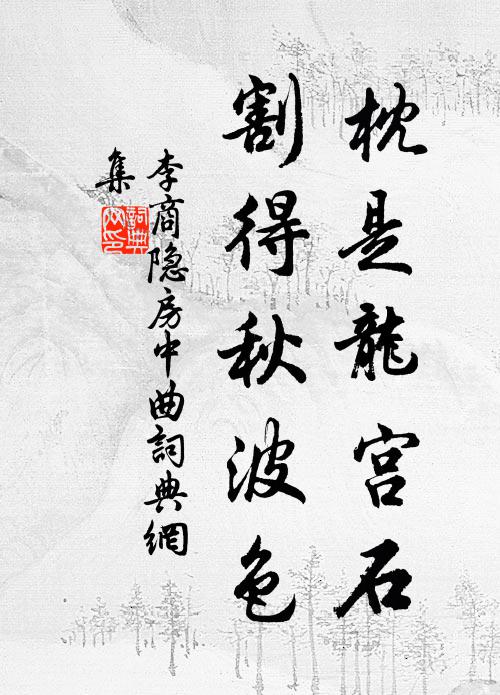 枕是龍宫石
割得秋波色
李商隐房中曲詞典網
集
詞典网印